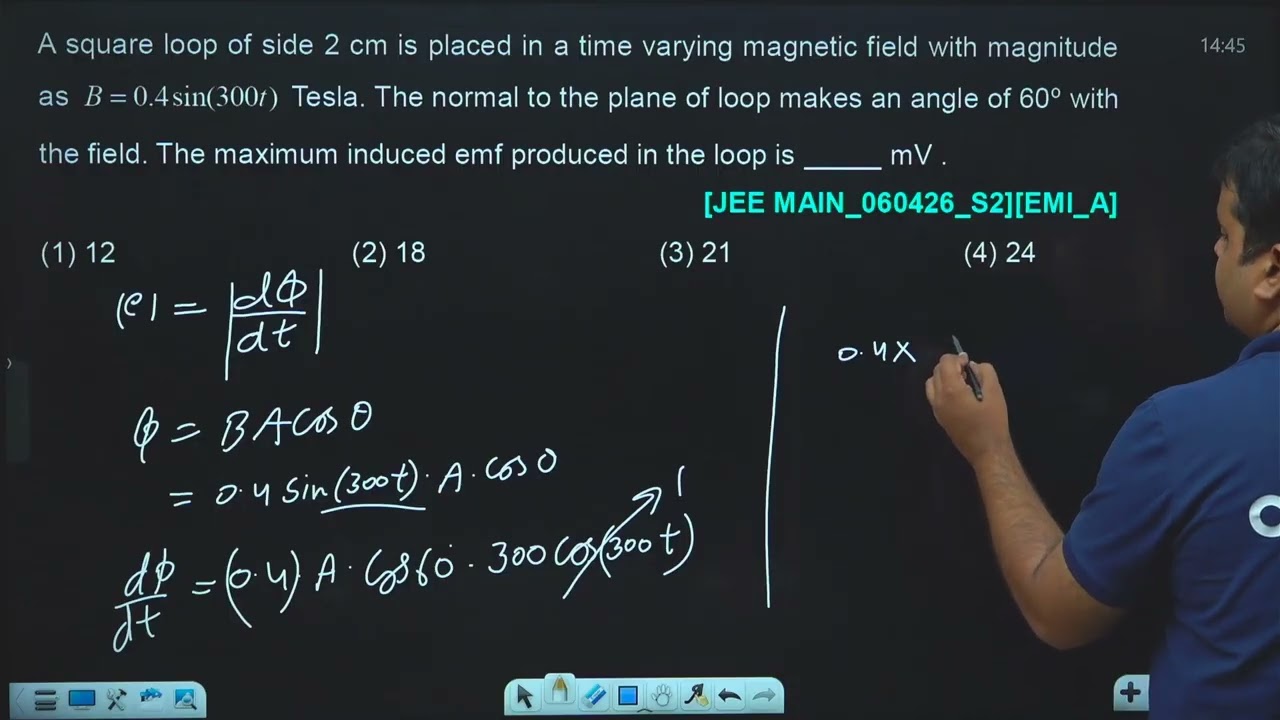 A square loop of side 2 cm is placed in a time varying magnetic field with magnitude
14:45
as B = 0.4sin(300t) Tesla. The normal to the plane of loop makes an angle of 60º with
the field. The maximum induced emf produced in the loop is _____ mV .
[JEE MAIN_060426_S2][EMI_A]
(1) 12 (2) 18 (3) 21 (4) 24
|e| = |dϕ/dt|
0.4×
ϕ = BA cos θ
= 0.4 sin(300t) · A · cos θ
1
dϕ/dt = (0.4) A · cos 60° · 300 cos(300t)